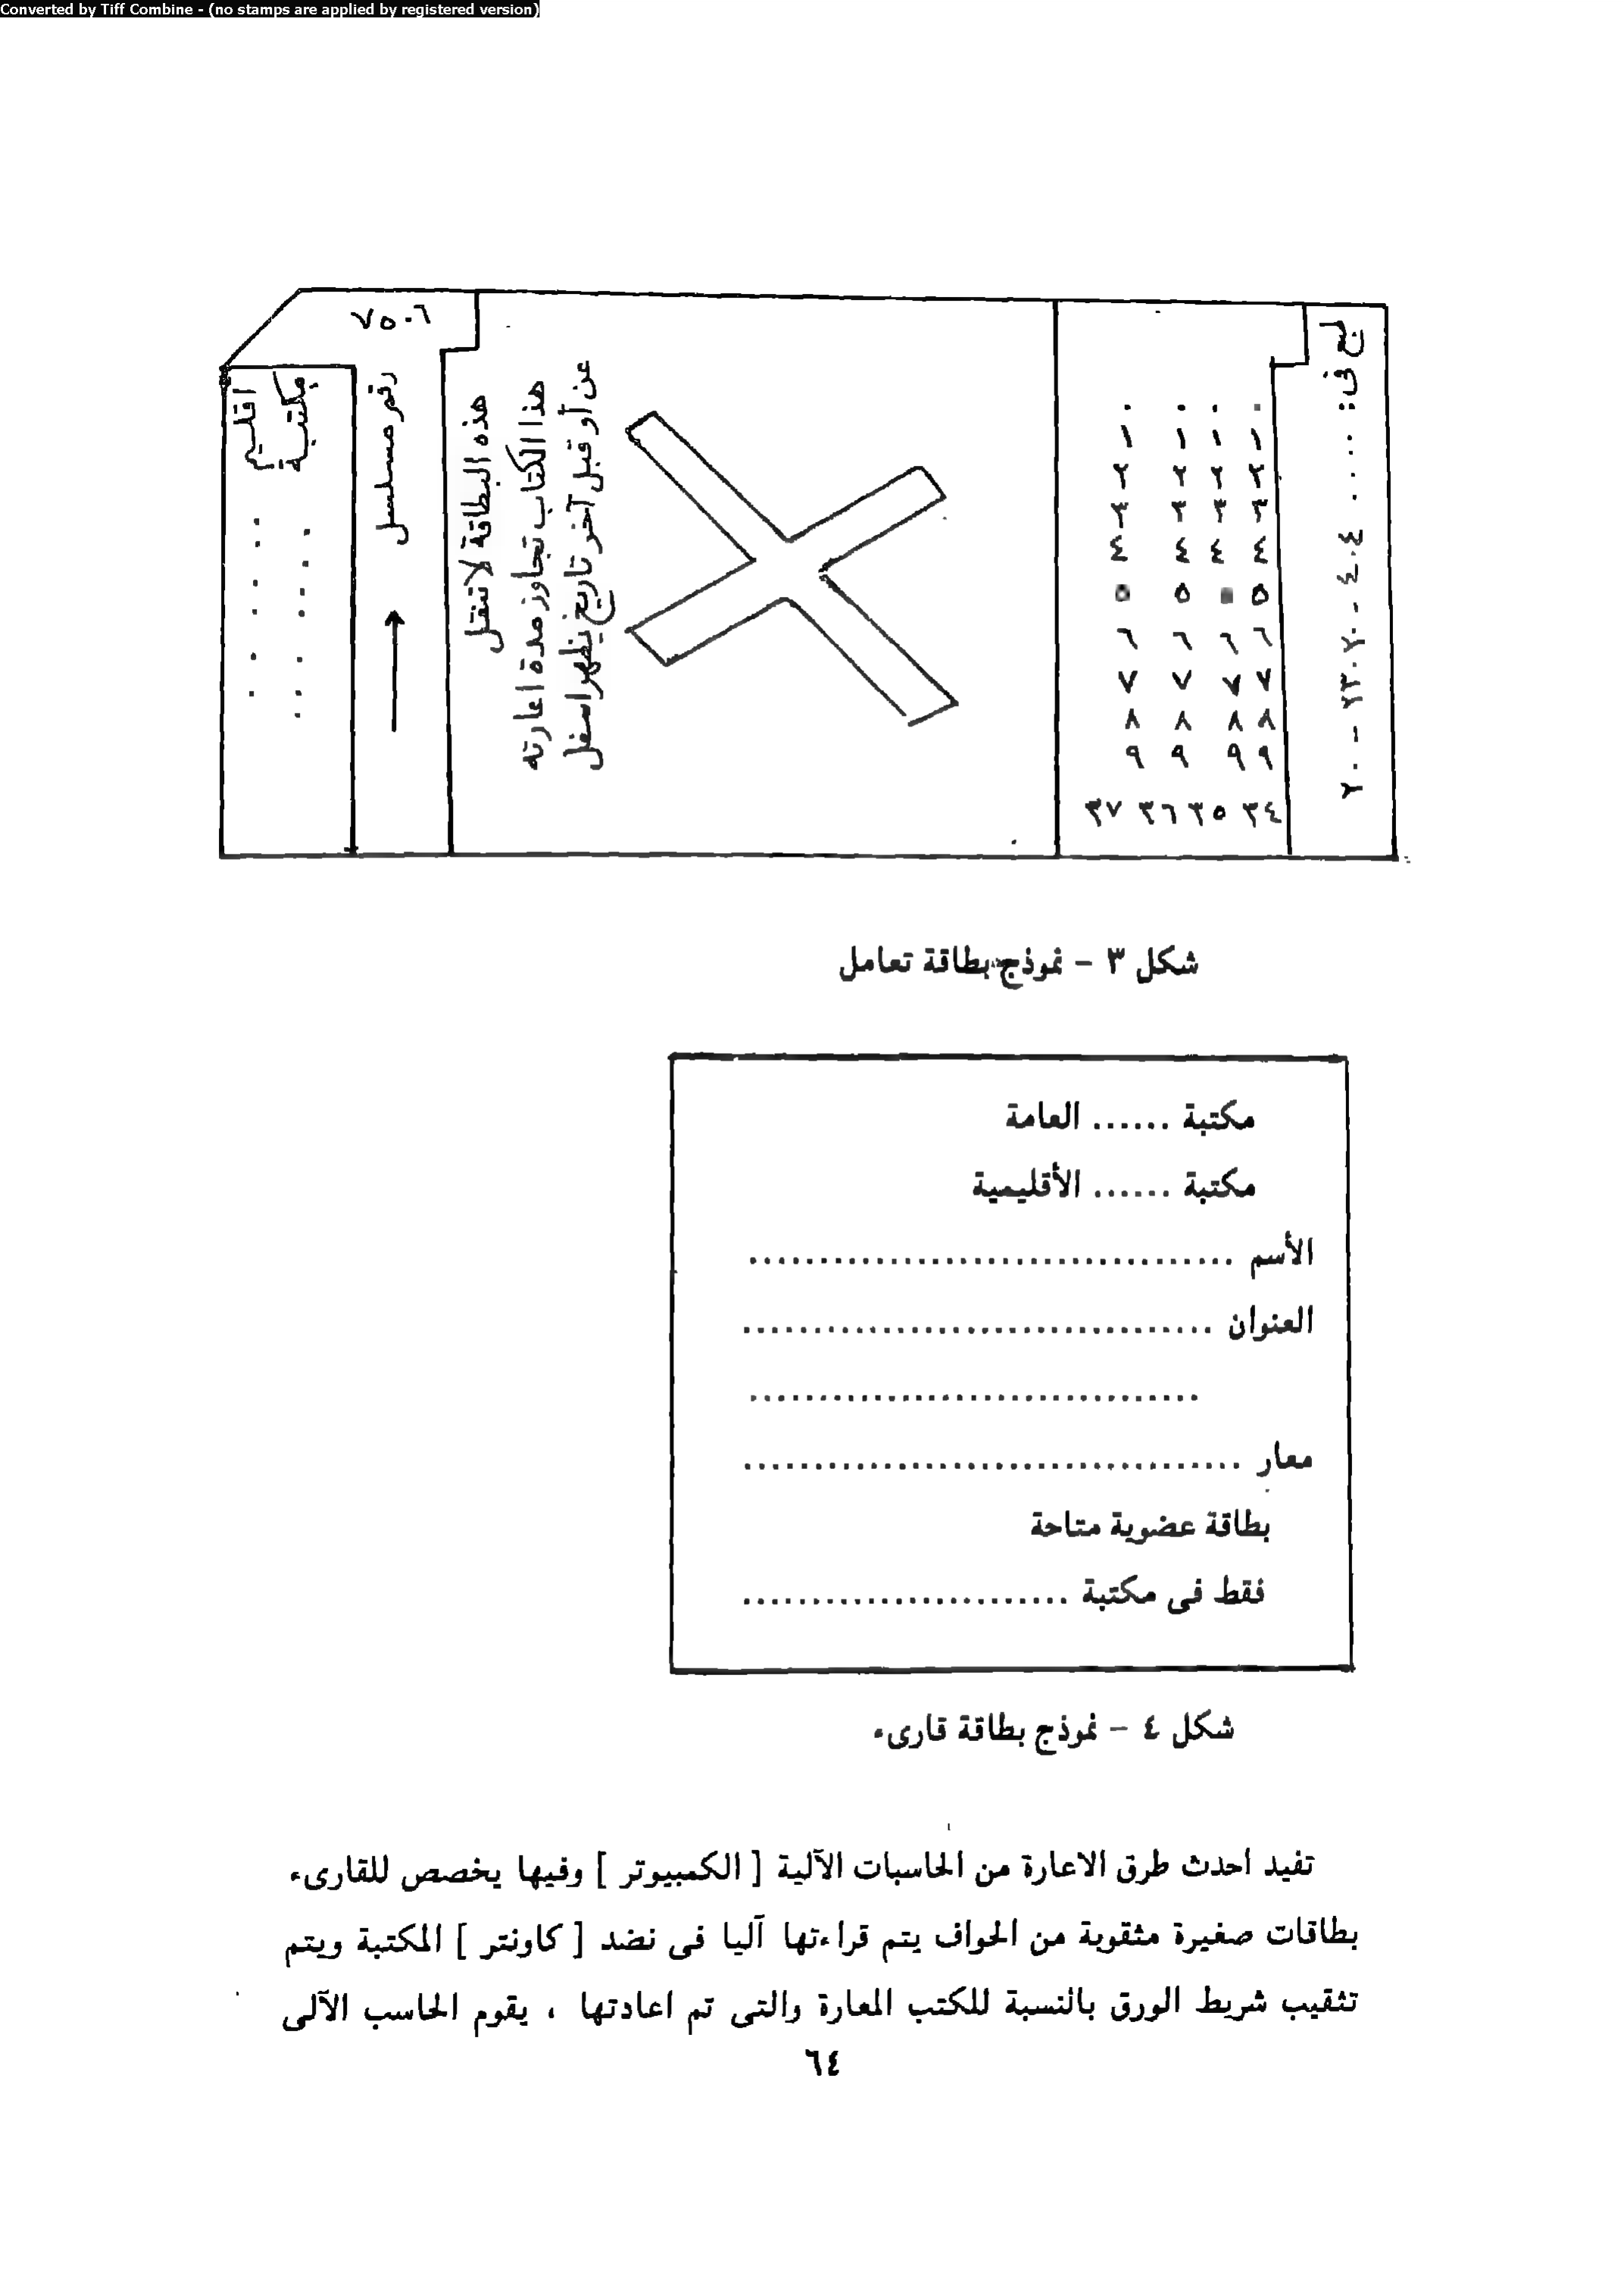 Converted by Tiff Combine - (no stamps are applied by registered version)
٧٥٠٦
اقليم . . . . . .
مكتبة . . . . . .
رقم مسلسل
هذه البطاقة لاتنقل
هذا الكتاب تجاوز مدة اعارته
عن أو قبل آخر تاريخ يظهر اسفل
٠ ٠ ٠ ٠
١ ١ ١ ١
٢ ٢ ٢ ٢
٣ ٣ ٣ ٣
٤ ٤ ٤ ٤
٥ ٥ ٥
٦ ٦ ٦ ٦
٧ ٧ ٧ ٧
٨ ٨ ٨ ٨
٩ ٩ ٩ ٩
٣٧ ٣٦ ٣٥ ٣٤
فى :
شكل ٣ - نموذج بطاقة تعامل
مكتبة ...... العامة
مكتبة ...... الأقليمية
الأسم ..................................
العنوان ..................................
................................
معار ....................................
بطاقة عضوية متاحة
فقط فى مكتبة ........................
شكل ٤ - نموذج بطاقة قارىء
تفيد احدث طرق الاعارة من الحاسبات الآلية [ الكمبيوتر ] وفيها يخصص للقارىء
بطاقات صغيرة مثقوبة من الحواف يتم قراءتها آليا فى نضد [ كاونتر ] المكتبة ويتم
تثقيب شريط الورق بالنسبة للكتب المعارة والتى تم اعادتها ، يقوم الحاسب الآلى
٦٤